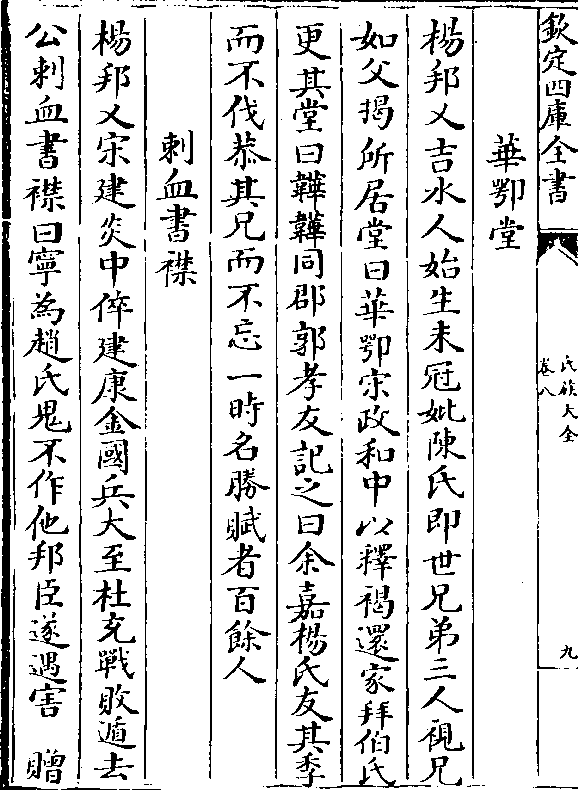 欽定四庫全書
氏族大全
卷八
九
華鄂堂
楊邦乂吉水人始生未冠妣陳氏即世兄弟三人視兄
如父揭所居堂曰華鄂宋政和中以釋褐還家拜伯氏
更其堂曰韡韡同郡郭孝友記之曰余嘉楊氏友其季
而不伐恭其兄而不忘一時名勝賦者百餘人
刺血書襟
楊邦乂宋建炎中倅建康金國兵大至杜充戰敗遁去
公刺血書襟曰寧為趙氏鬼不作他邦臣遂遇害 贈